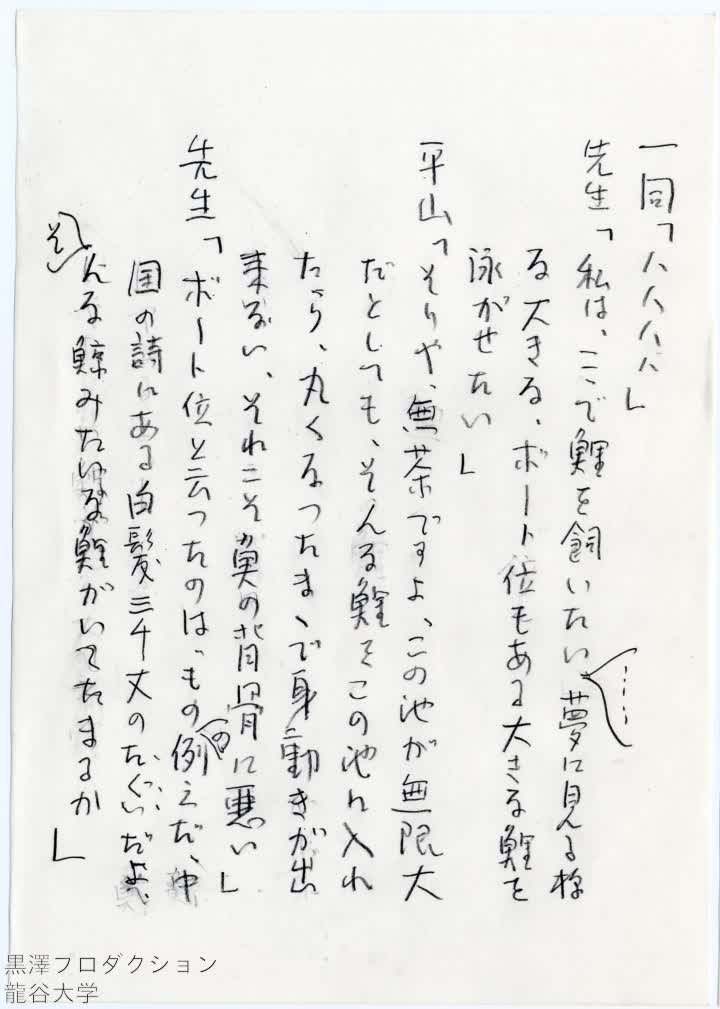 一同「ハハハハ」
先生「私は、ここで鯉を飼いたい……夢に見る様
な大きな、ボート位もある大きな鯉を
泳がせたい」
平山「そりや、無茶ですよ、この池が無限大
だとしても、そんな鯉をこの池に入れ
たら、丸くなつたまゝで身動きが出
来ない、それこそ鯉の背骨に悪い」
先生「ボート位と云つたのは、ものの例えだ、中
国の詩にある白髪三千丈のたぐいだよ、
そんな鯨みたいな鯉がいてたまるか」
黒澤プロダクション
龍谷大学